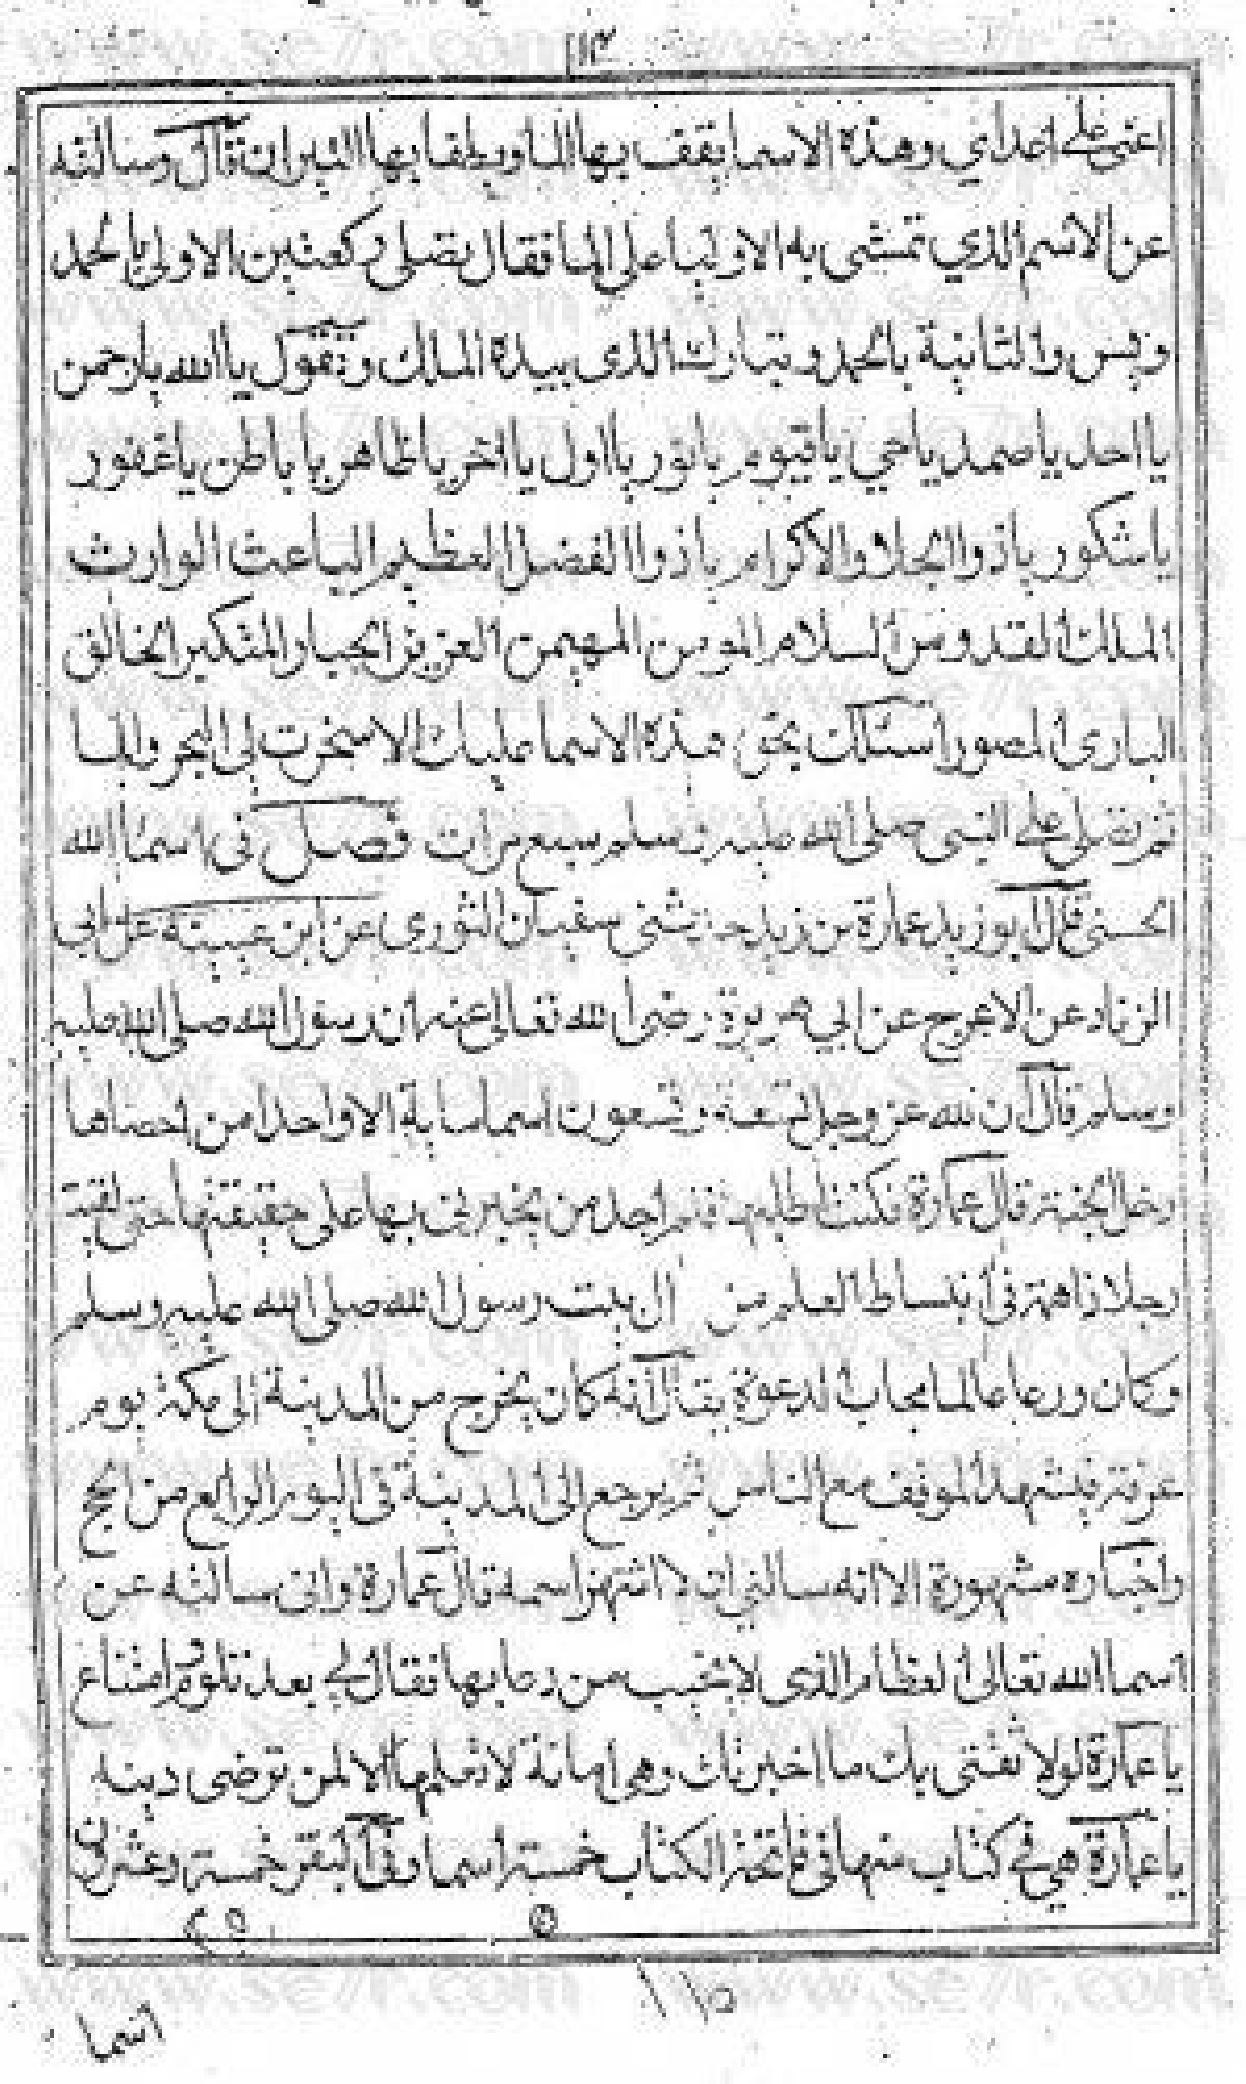 ١١٣
اعنى على اعداي وهذه الاسما يقف بها الما ويطفا بها النيران قال وسالته
عن الاسم الذي تمشى به الاوليا على الما فقال تصلى ركعتين الاولى بالحمد
ويس والثانية بالحمد وتبارك الذى بيده الملك وتقول يا الله يا رحمن
يا احد يا صمد يا حي يا قيوم يا نور يا اول يا اخر يا ظاهر يا باطن يا غفور
يا شكور يا ذو الجلال والاكرام يا ذوا الفضل العظيم الباعث الوارث
الملك القدوس السلام المومن المهيمن العزيز الجبار المتكبر الخالق
البارى المصور اسئلك بحق هذه الاسما عليك الا سخرت لى البحر والما
ثم تصلى على النبى صلى الله عليه وسلم سبع مرات فصل فى اسما الله
الحسنى قال ابو زيد عمارة بن زيد حدثنى سفيان الثورى عن ابن عيينة عن ابى
الزناد عن الاعرج عن ابي هريرة رضى الله تعالى عنه ان رسول الله صلى الله عليه
وسلم قال ان لله عز وجل تسعة وتسعون اسما ماية الا واحدا من احصاها
دخل الجنة قال عمارة فكنت اطلبها فلم اجد من يخبرنى بها على حقيقتها حتى لقيت
رجلا ذا همة فى انبساط العلم من ال بيت رسول الله صلى الله عليه وسلم
وكان ورعا عالما مجاب الدعوة يقال انه كان يخرج من المدينة الى مكة يوم
عرفة فيشهد الموقف مع الناس ثم يرجع الى المدينة فى اليوم الرابع من الحج
واخباره مشهورة الا انه سالني ان لا اشتهر اسمه قال عمارة وانى سالته عن
اسما الله تعالى العظام الذى لا يخيب من دعا بها فقال لى بعد تلوم وامتناع
يا عمارة لولا ثقتى بك ما اخبرتك وهى امانة لا تعلمها الا لمن ترضى دينه
يا عمارة هي في كتاب منها فى فاتحة الكتاب خمسة اسما وفى البقرة خمسة وعشرون
اسما